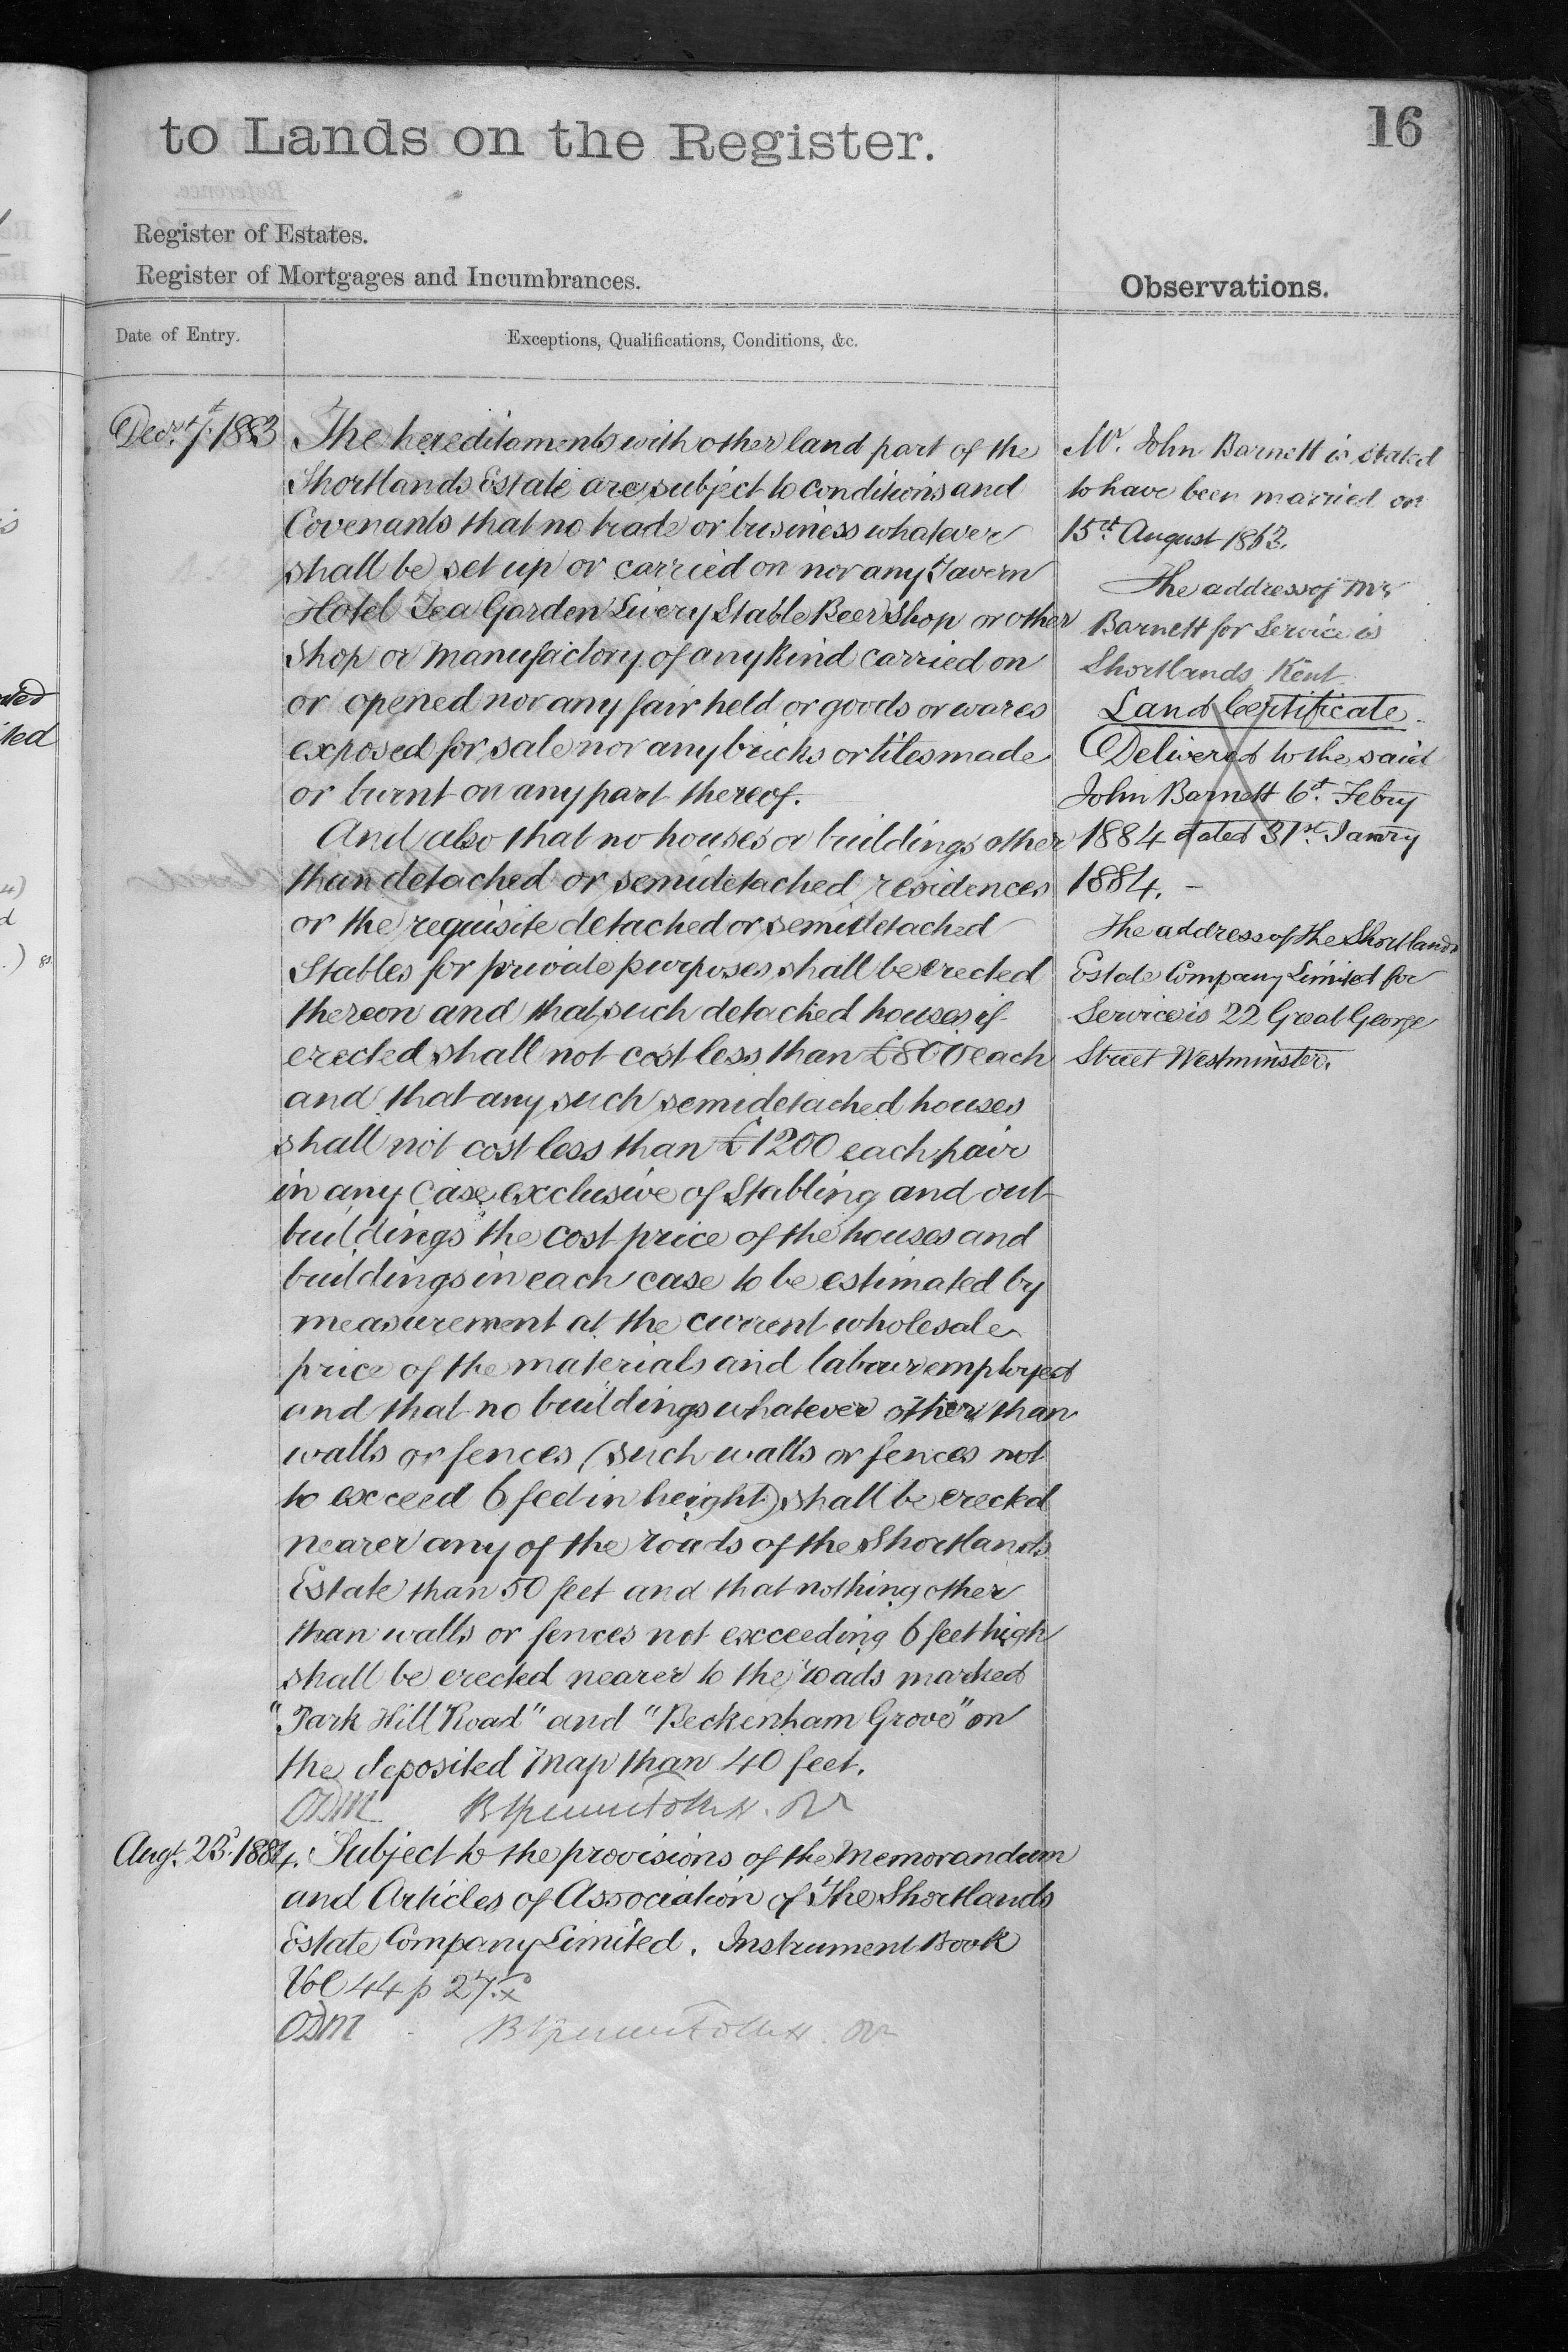 16
to Lands on the Register.
Register of Estates.
Register of Mortgages and Incumbrances.
Observations.
Date of Entry.
Exceptions, Qualifications, Conditions, &c.
Decr. 7th. 1883
The hereditaments with other land part of the
Shortlands Estate are subject to conditions and
Covenants that no trade or business whatever
shall be set up or carried on nor any Tavern
Hotel Tea Garden Livery Stable Beer Shop or other
Shop or Manufactory of any kind carried on
or opened nor any fair held or goods or wares
exposed for sale nor any bricks or tiles made
or burnt on any part thereof.
And also that no houses or buildings other
than detached or semidetached residences
or the requisite detached or semidetached
Stables for private purposes shall be erected
thereon and that such detached houses if
erected shall not cost less than £800 each
and that any such semidetached houses
shall not cost less than £1200 each pair
in any case exclusive of Stabling and out
buildings the cost price of the houses and
buildings in each case to be estimated by
measurement at the current wholesale
price of the materials and labour employed
and that no buildings whatever other than
walls or fences (such walls or fences not
to exceed 6 feet in height) shall be erected
nearer any of the roads of the Shortlands
Estate than 50 feet and that nothing other
than walls or fences not exceeding 6 feet high
shall be erected nearer to the roads marked
"Park Hill Road" and "Beckenham Grove" on
the deposited map than 40 feet.
Augt. 23d. 1884. Subject to the provisions of the Memorandum
and Articles of Association of The Shortlands
Estate Company Limited. Instrument Book
Vol 44 p 27.
Mr. John Barnett is stated
to have been married on
15th August 1863.
The address of Mr.
Barnett for Service is
Shortlands Kent
Land Certificate.
Delivered to the said
John Barnett 6th. Febry
1884 dated 31st. Janry
1884. –
The address of the Shortlands
Estate Company Limited for
Service is 22 Great George
Street Westminster.